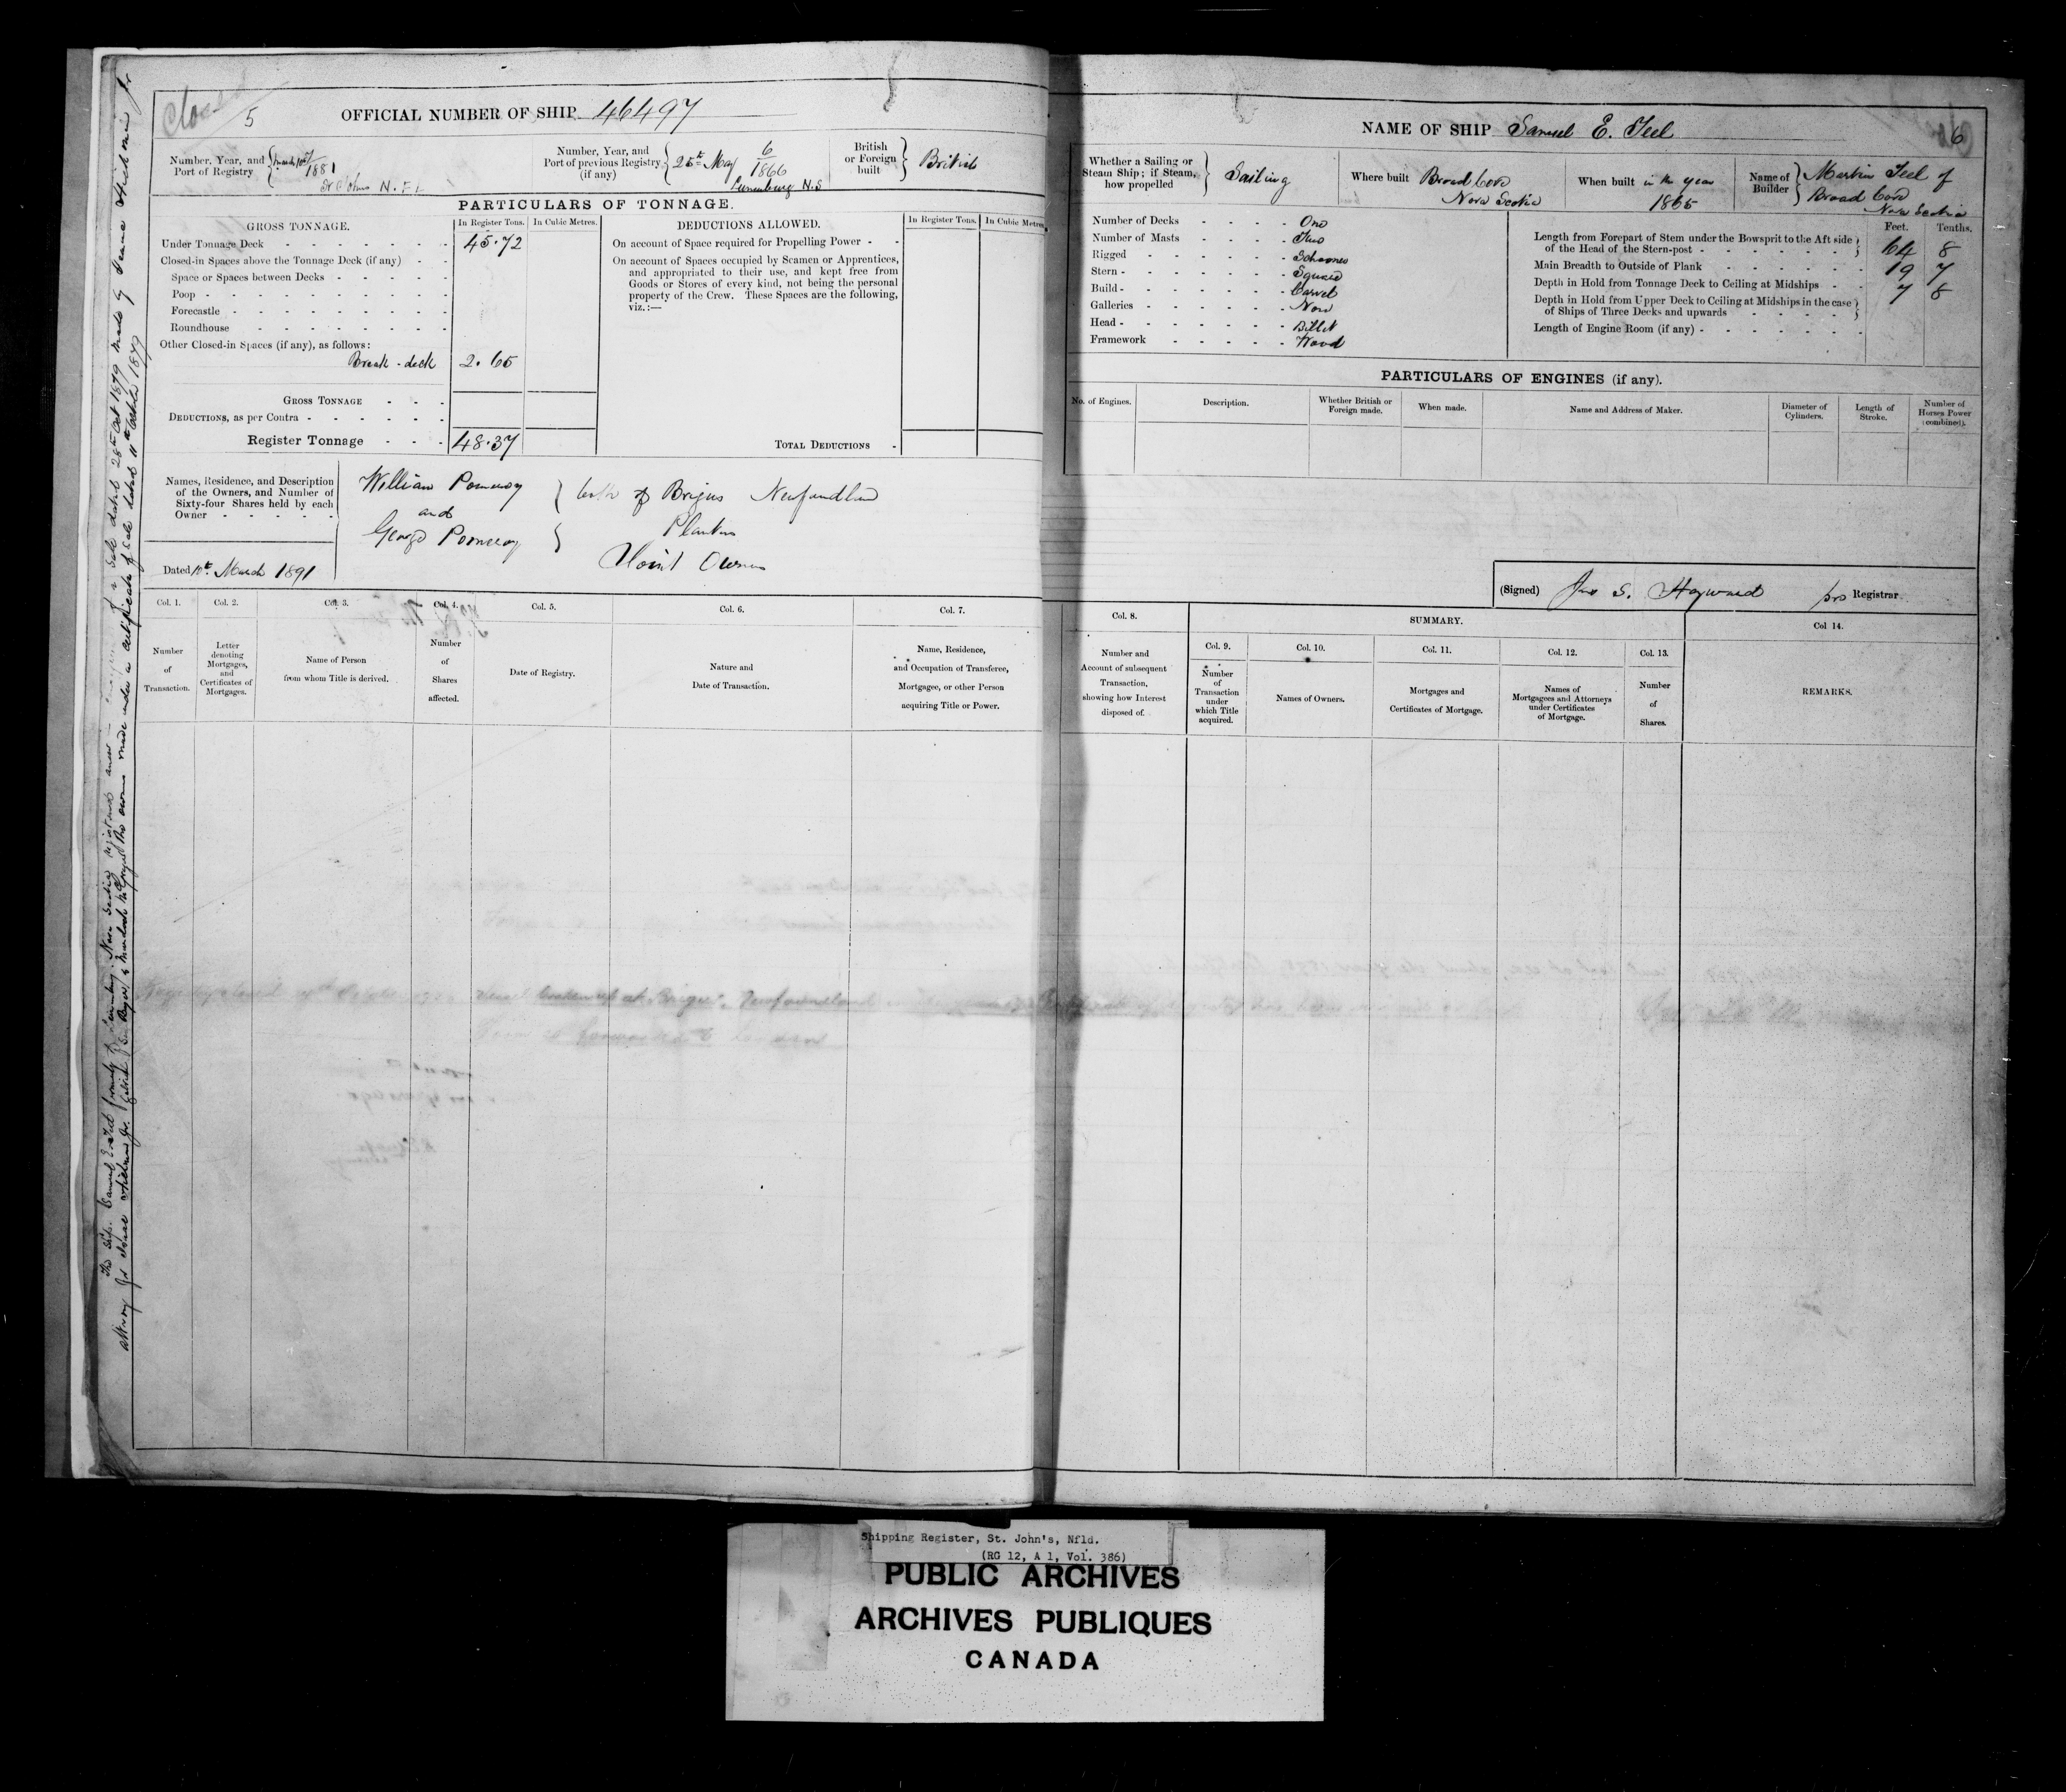 Closed
5
OFFICIAL NUMBER OF SHIP 46497
Number, Year, and Port of Registry { March 10th 7/1881 St John's N.F.
Number, Year, and Port of previous Registry (if any) { 25th May 6/1866 Lunenburg N.S
British or Foreign built } British
PARTICULARS OF TONNAGE.
GROSS TONNAGE.
In Register Tons. In Cubic Metres.
Under Tonnage Deck 45.72
Closed-in Spaces above the Tonnage Deck (if any)
Space or Spaces between Decks
Poop
Forecastle
Roundhouse
Other Closed-in Spaces (if any), as follows:
Break-deck 2.65
GROSS TONNAGE
DEDUCTIONS, as per Contra
Register Tonnage 48.37
DEDUCTIONS ALLOWED.
In Register Tons. In Cubic Metres
On account of Space required for Propelling Power
On account of Spaces occupied by Seamen or Apprentices,
and appropriated to their use, and kept free from
Goods or Stores of every kind, not being the personal
property of the Crew. These Spaces are the following,
viz.:—
TOTAL DEDUCTIONS
Names, Residence, and Description
of the Owners, and Number of
Sixty-four Shares held by each
Owner
William Pomeroy
and
George Pomeroy
} both of Brigus Newfoundland
Planters
Joint Owners
Dated 10th March 1891
Col. 1. Col. 2. Col. 3. Col. 4. Col. 5. Col. 6. Col. 7.
Number of Transaction.
Letter denoting Mortgages, and Certificates of Mortgages.
Name of Person from whom Title is derived.
Number of Shares affected.
Date of Registry.
Nature and Date of Transaction.
Name, Residence, and Occupation of Transferee, Mortgagee, or other Person acquiring Title or Power.
NAME OF SHIP Samuel E. Teel
6
Whether a Sailing or Steam Ship; if Steam, how propelled } Sailing
Where built Broad Cove Nova Scotia
When built in the year 1865
Name of Builder { Martin Teel of Broad Cove Nova Scotia
Number of Decks One
Number of Masts Two
Rigged Schooner
Stern Square
Build Carvel
Galleries None
Head Billet
Framework Wood
Feet. Tenths.
Length from Forepart of Stem under the Bowsprit to the Aft side
of the Head of the Stern-post 64 8
Main Breadth to Outside of Plank 19 7
Depth in Hold from Tonnage Deck to Ceiling at Midships 7 8
Depth in Hold from Upper Deck to Ceiling at Midships in the case
of Ships of Three Decks and upwards
Length of Engine Room (if any)
PARTICULARS OF ENGINES (if any).
No. of Engines.
Description.
Whether British or Foreign made.
When made.
Name and Address of Maker.
Diameter of Cylinders.
Length of Stroke.
Number of Horses Power (combined).
(Signed) S. Hayward pro Registrar
Col. 8.
SUMMARY.
Col 14.
Col. 9. Col. 10. Col. 11. Col. 12. Col. 13.
Number and Account of subsequent Transaction, showing how Interest disposed of.
Number of Transaction under which Title acquired.
Names of Owners.
Mortgages and Certificates of Mortgage.
Names of Mortgagees and Attorneys under Certificates of Mortgage.
Number of Shares.
REMARKS.
Shipping Register, St. John's, Nfld.
(RG 12, A 1, Vol. 386)
PUBLIC ARCHIVES
ARCHIVES PUBLIQUES
CANADA